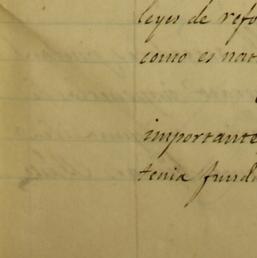 leyes de refo
como es nat
importante
tenia fund